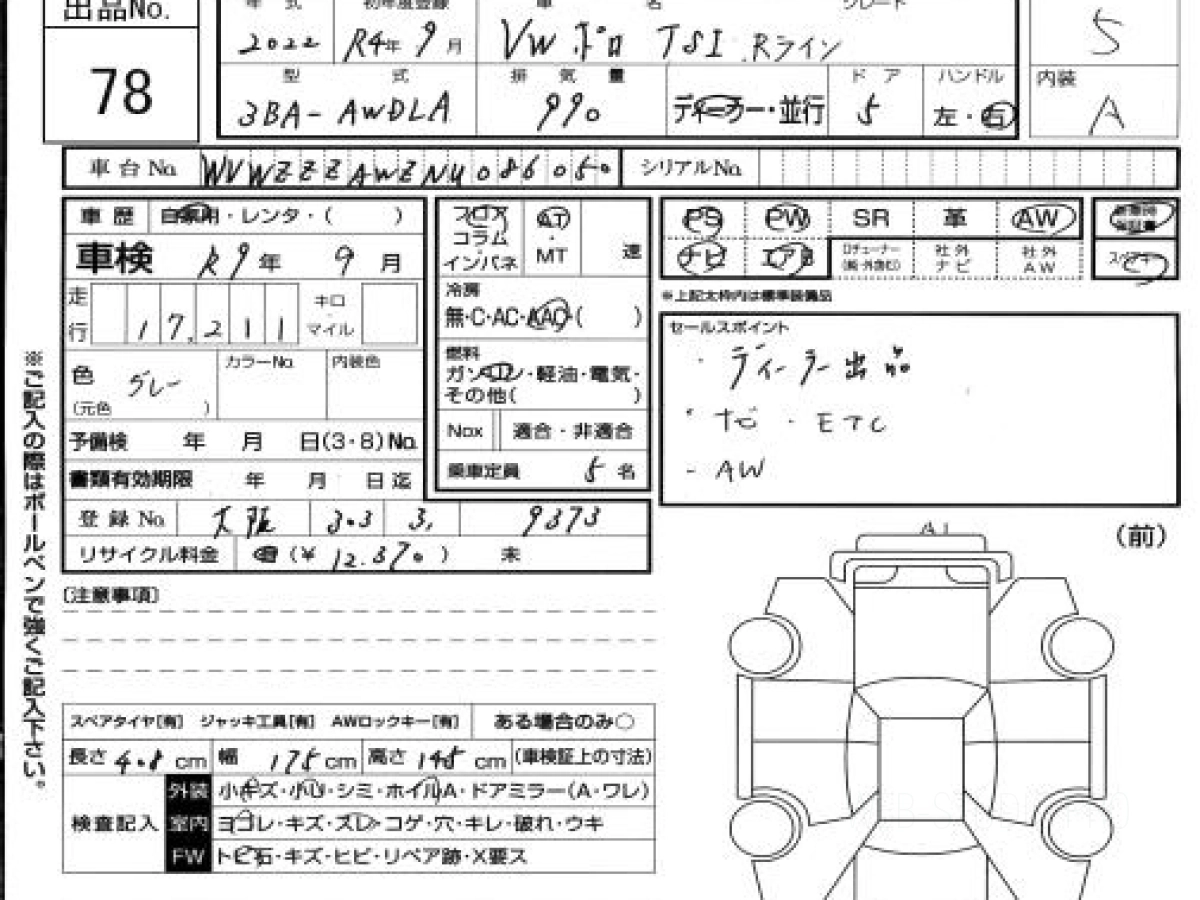 出品No. 年式 初年度登録 車名 グレード 5
2022 R4年9月 VW ポロ TSI Rライン
78 型式 排気量 ドア ハンドル 内装
3BA-AWDLA 990 ディーラー・並行 5 左・右 A
車台No. WVWZZZAWZNU086050 シリアルNo.
車歴 自家用・レンタ・( ) フロア AT PS PW SR 革 AW
車検 R9年 9月 コラム・インパネ MT 速 ナビ エアB Dチューナー 社外ナビ 社外AW スペアキー
走行 17,211 キロ・マイル 冷房 ※上記太枠内は標準装備品
無・C・AC・AAC・( ) セールスポイント
色 グレー カラーNo. 内装色 燃料 ・ディーラー出品
(元色 ) ガソリン・軽油・電気・
その他( ) ・ナビ・ETC
予備検 年 月 日(3・8)No. Nox 適合・非適合
書類有効期限 年 月 日迄 乗車定員 5名 - AW
登録No. 大阪 3.3 9373
リサイクル料金 (¥12.370) 未 A1 (前)
〔注意事項〕
※ご記入の際はボールペンで強くご記入下さい。
スペアタイヤ[有] ジャッキ工具[有] AWロックキー[有] ある場合のみ○
長さ 408 cm 幅 175 cm 高さ 145 cm (車検証上の寸法)
検査記入 外装 小キズ・小凹・シミ・ホイルA・ドアミラー(A・ワレ)
室内 ヨゴレ・キズ・スレ・コゲ・穴・キレ・破れ・ウキ
FW トビ石・キズ・ヒビ・リペア跡・X要ス